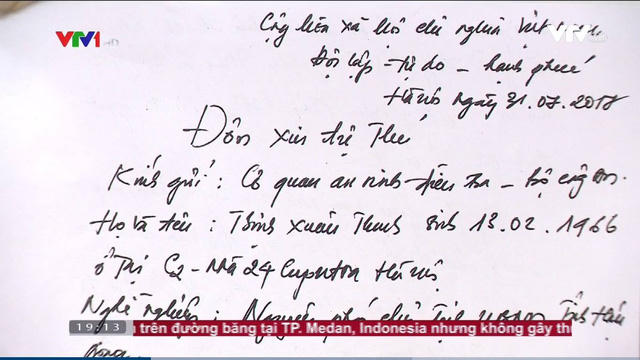 VTV1
Cộng hòa xã hội chủ nghĩa Việt
Độc lập - tự do - hạnh phúc
Hà Nội ngày 31.07.2017
Đơn xin tự thú
Kính gửi: Cơ quan an ninh điều tra - Bộ công an.
Họ và tên: Trịnh Xuân Thanh sinh 13.02.1966
ở tại C2 - Nhà 24 Ciputra Hà Nội
Nghề nghiệp: Nguyên phó chủ tịch UBND tỉnh Hậu
19:13 trên đường băng tại TP. Medan, Indonesia nhưng không gây thi